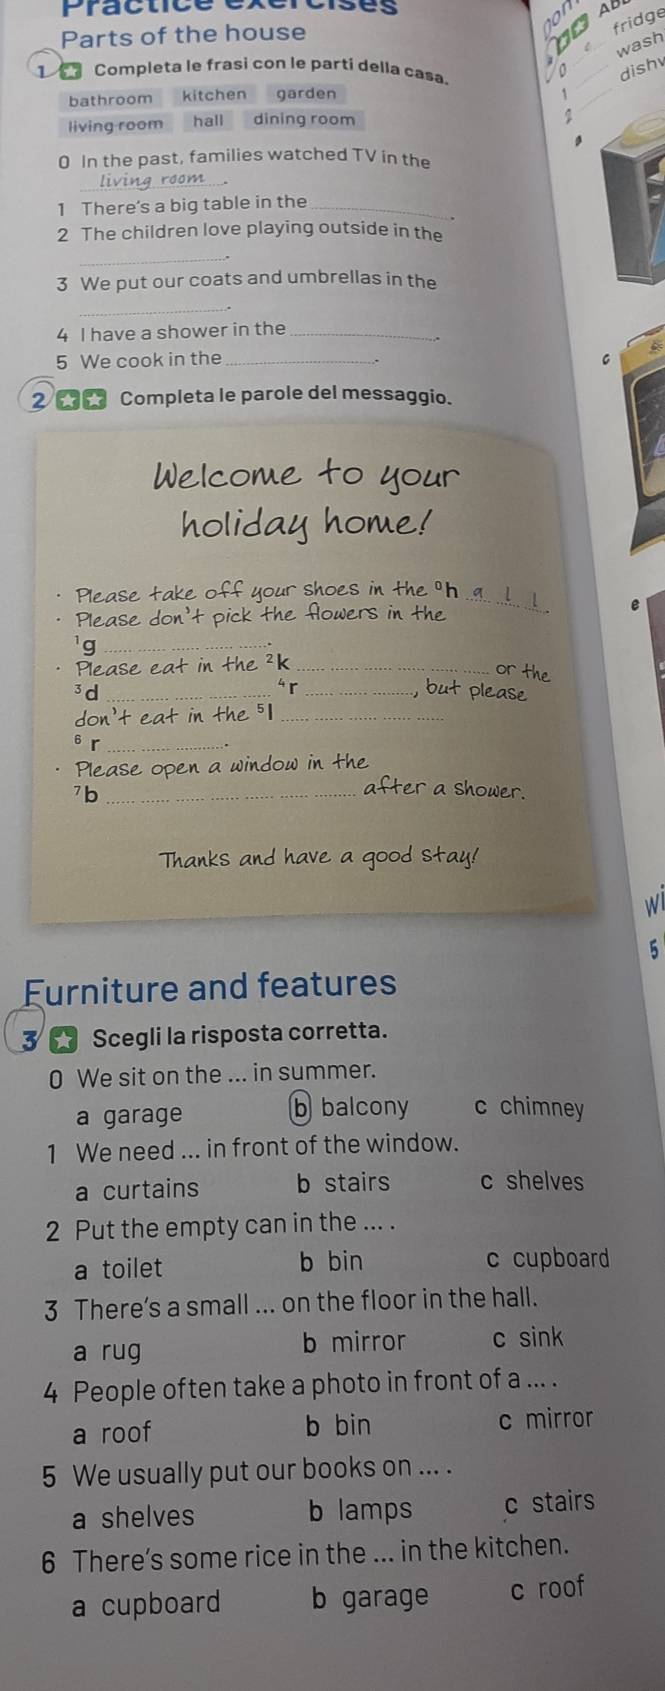 Practice exercises
Parts of the house
1 Completa le frasi con le parti della casa.
bathroom kitchen garden
living room hall dining room
0 In the past, families watched TV in the
living room.
1 There's a big table in the ____.
2 The children love playing outside in the
____.
3 We put our coats and umbrellas in the
____.
4 I have a shower in the ____.
5 We cook in the ____.
2 Completa le parole del messaggio.
Welcome to your
holiday home!
· Please take off your shoes in the 0h a l l.
· Please don't pick the flowers in the
1g __ __ __ __ __.
· Please eat in the 2k __ __ __ __ __ __ or the
3d __ __ __ __ __ 4r __ __ __, but please
don't eat in the 5l __ __ __ __ __
6 r __ __ __.
· Please open a window in the
7b __ __ __ __ __ __ __ after a shower.
Thanks and have a good stay!
Furniture and features
3 Scegli la risposta corretta.
0 We sit on the ... in summer.
a garage b balcony c chimney
1 We need ... in front of the window.
a curtains b stairs c shelves
2 Put the empty can in the ... .
a toilet b bin c cupboard
3 There's a small ... on the floor in the hall.
a rug b mirror c sink
4 People often take a photo in front of a ... .
a roof b bin c mirror
5 We usually put our books on ... .
a shelves b lamps c stairs
6 There's some rice in the ... in the kitchen.
a cupboard b garage c roof
fridge
wash
dishw
0
1
2
a
c
e
wi
5